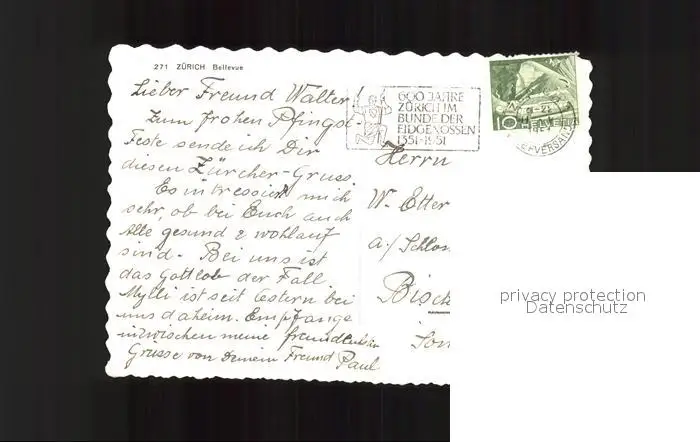 271 ZÜRICH Bellevue
Lieber Freund Walter!
Zum frohen Pfingst-
Feste sende ich Dir
diesen Zürcher-Gruss.
Es intressiert mich
sehr, ob bei Euch auch
Alle gesund & wohlauf
sind. Bei uns ist
das Gottlob der Fall
Mylli ist seit Ostern bei
uns daheim. Empfange
inzwischen meine freundlichen
Grüsse von Deinem Freund Paul
600 JAHRE
ZÜRICH IM
BUNDE DER
EIDGENOSSEN
1351-1951
10
HELVETIA
BRIEFVERSAND
Herrn
W. Etter
a./Schlos
Bisch
Son
privacy protection
Datenschutz